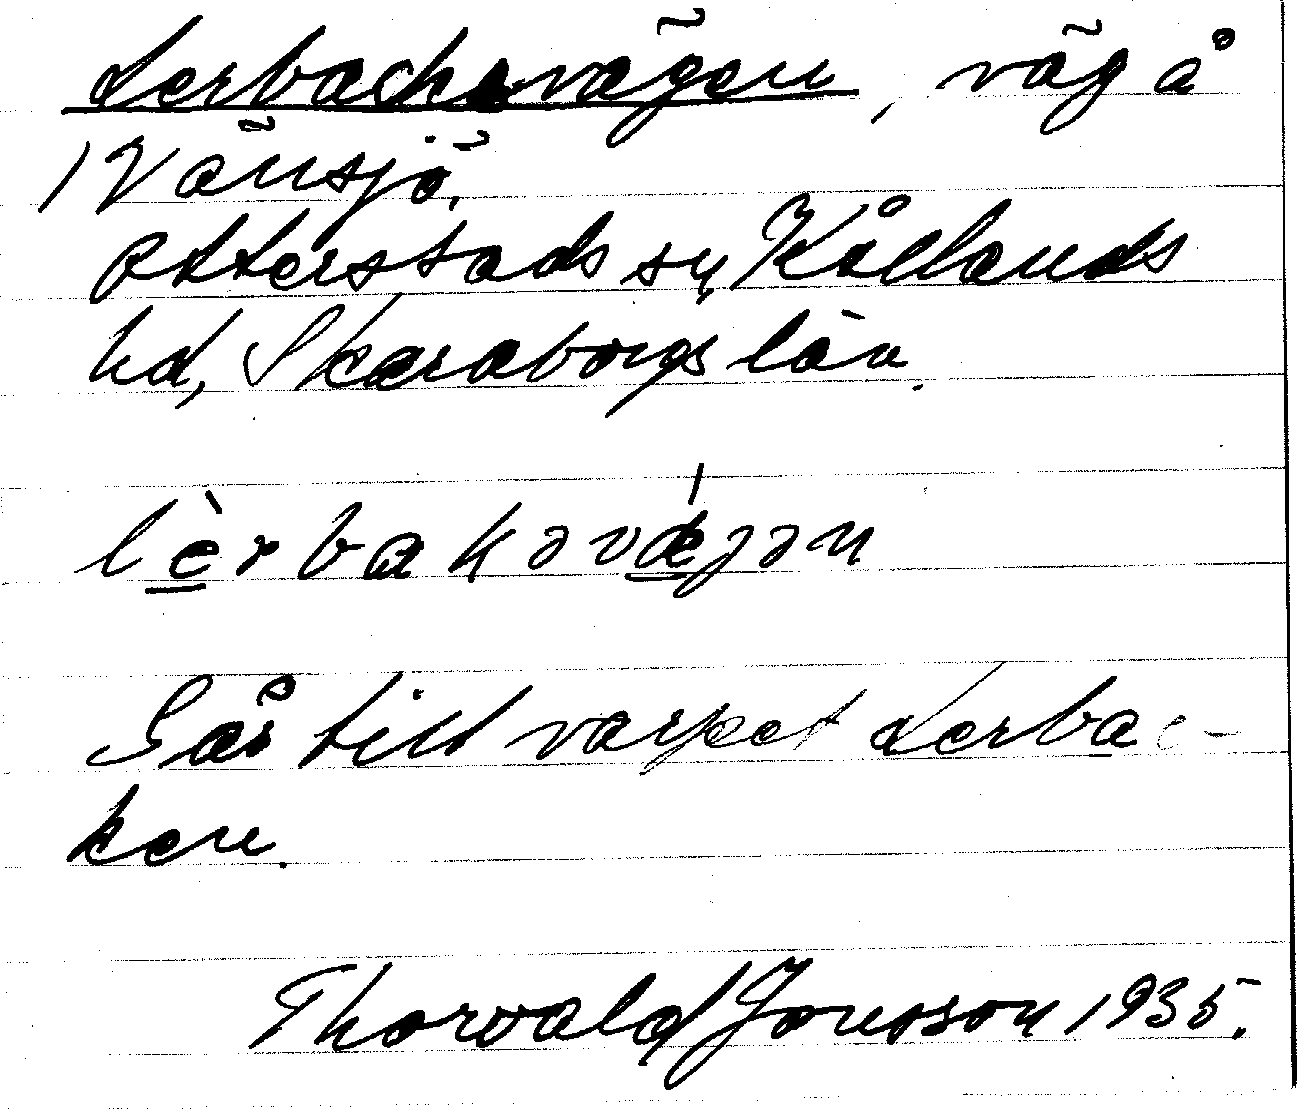 Lerbackavägen, väg å
1 Vänsjö.
Otterstads sn, Kållands
hd, Skaraborgs län.
lèrbakəvǽjən
Går till varpet Lerbac-
ken.
Thorvald Jonsson 1935.